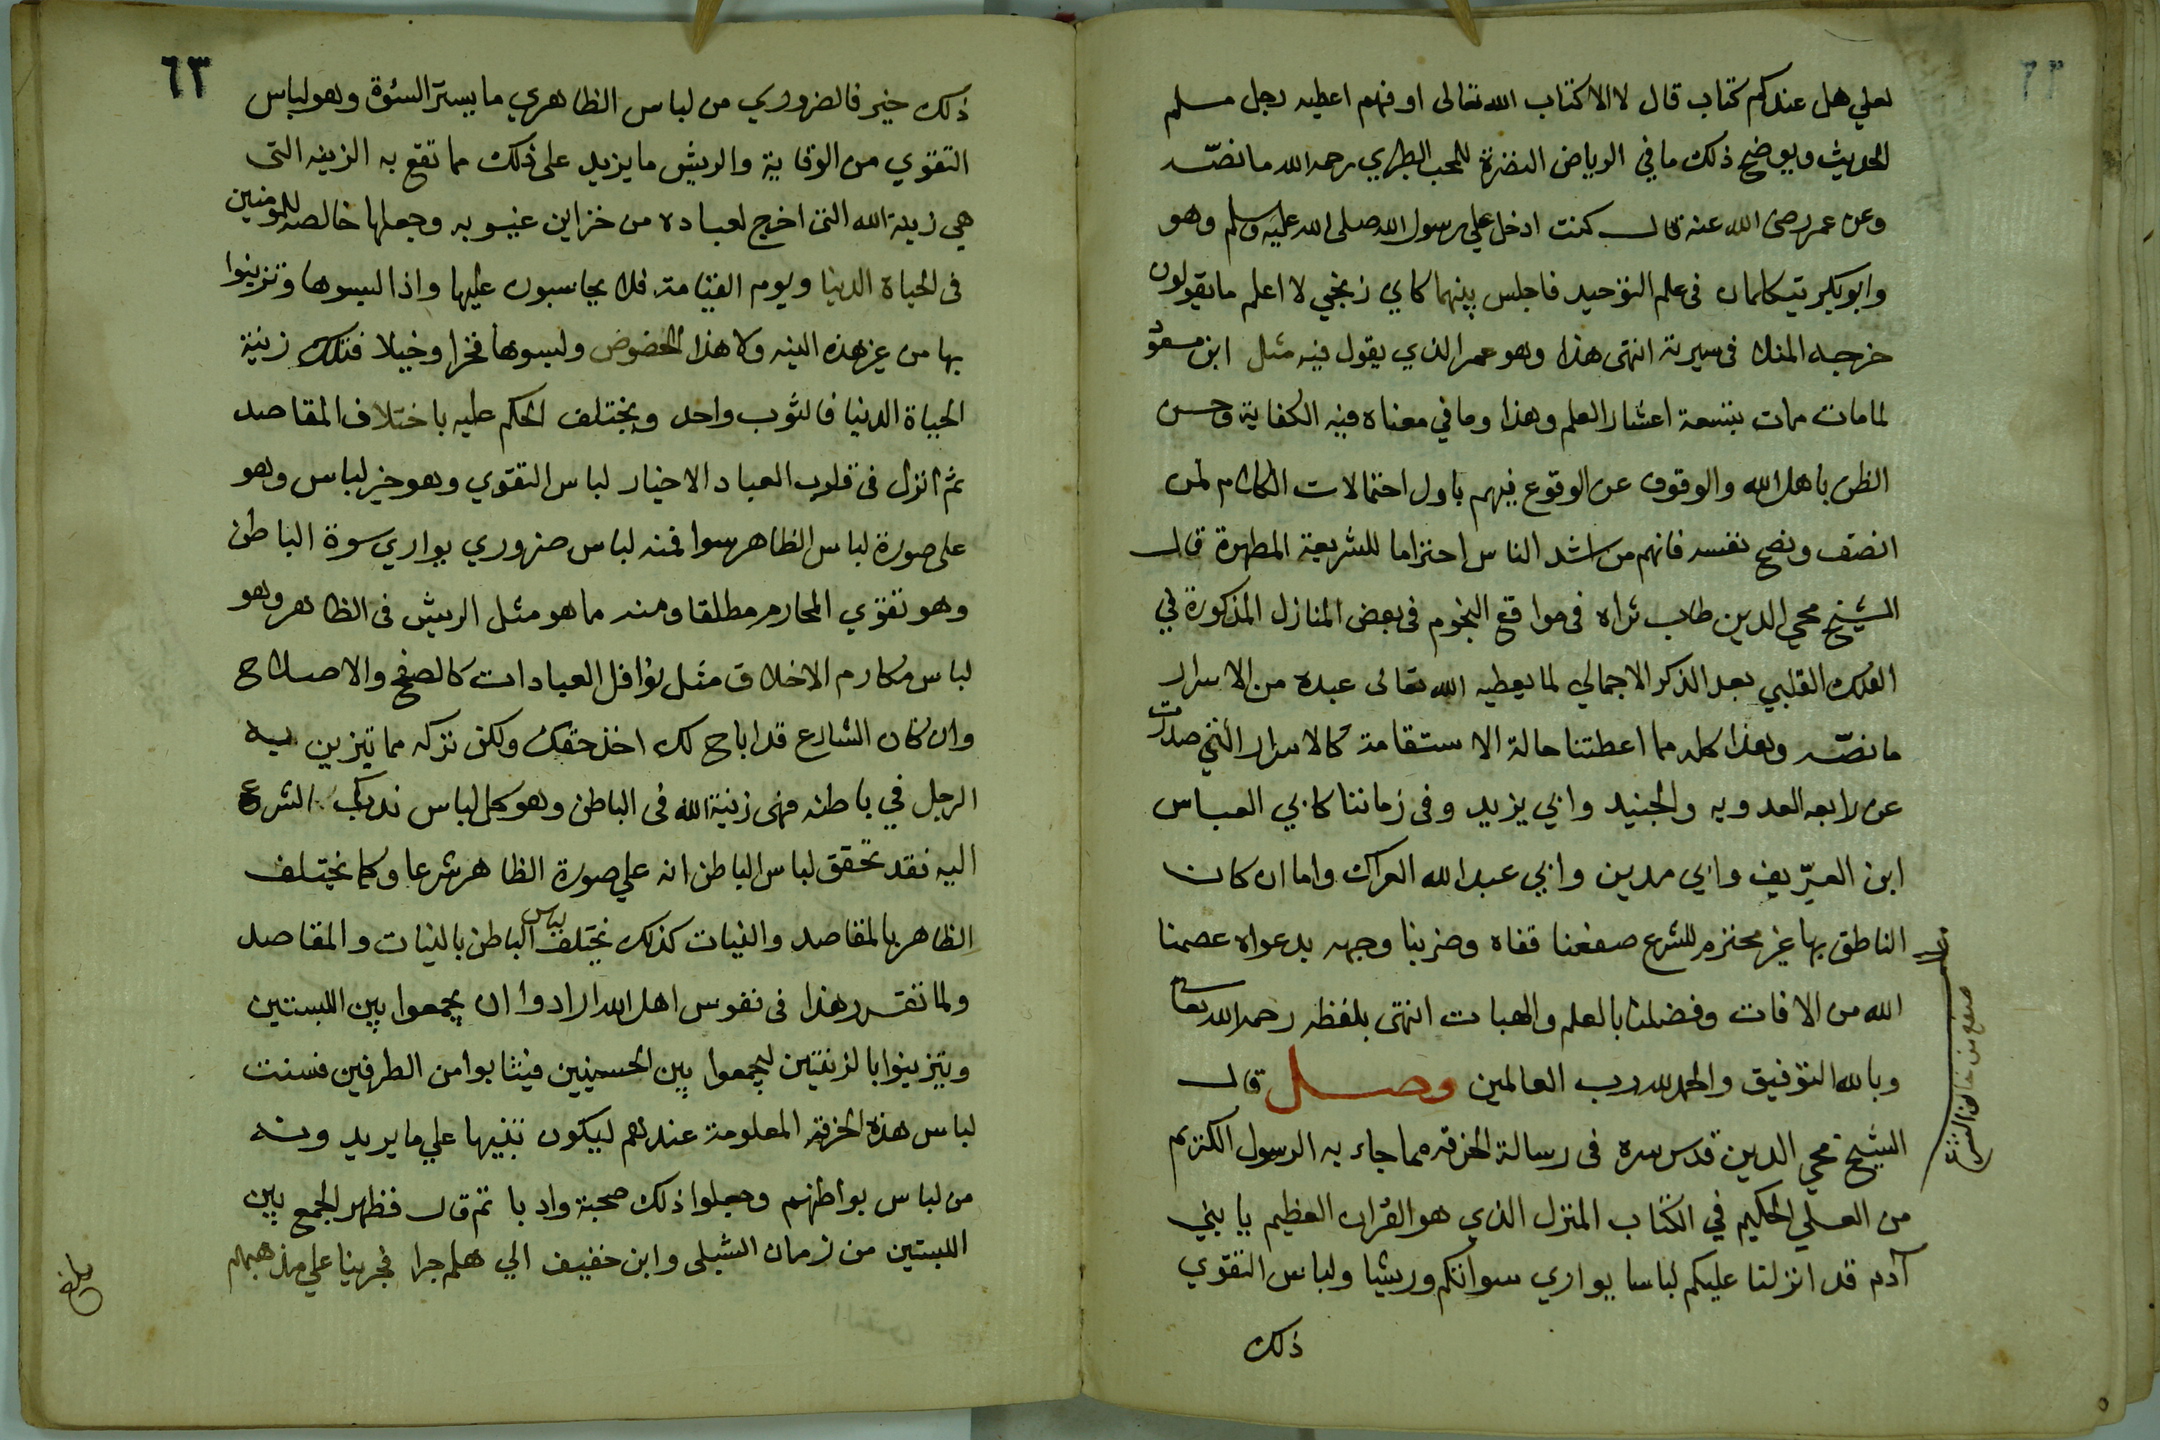 لعلي هل عندكم كتاب قال لا الا كتاب الله تعالى او فهم اعطيه رجل مسلم
الحديث ويوضح ذلك ما في الرياض النضرة للمحب الطبري رحمه الله ما نصّه
وعن عمر رضى الله عنه قال كنت ادخل علي رسول الله صلى الله عليه وسلم وهو
وابو بكر يتكلمان فى علم التوحيد فاجلس بينهما كاني زنجي لا اعلم ما يقولون
خرجه الملا فى سيرته انتهى هذا وهو عمر الذي يقول فيه مثل ابن مسعود
لما مات مات بتسعة اعشار العلم وهذا وما في معناه فيه الكفاية وحسن
الظن باهل الله والوقوف عن الوقوع فيهم باول احتمالات الكلام لمن
انصف ونصح نفسه فانهم من اشد الناس احتراما للشريعة المطهرة قال
الشيخ محي الدين طاب ثراه فى مواقع النجوم فى بعض المنازل المذكورة في
الفلك القلبي بعد الذكر الاجمالي لما يعطيه الله تعالى عبده من الاسرار
ما نصّه وهذا كله مما اعطتنا حالة الاستقامة كالاسرار التي صدرت
عن رابعه العدويه والجنيد وابي يزيد وفى زماننا كابي العباس
ابن العرّيف وابي مدين وابي عبد الله العراك واما ان كان
الناطق بها غير محترم للشرع صفعنا قفاه وضربنا وجهه بدعواه عصمنا
الله من الافات وفضلنا بالعلم والهبات انتهى بلفظه رحمه الله تعالى
وبالله التوفيق والحمد لله رب العالمين وصل قال
الشيخ محي الدين قدس سره فى رسالة الخرقه مما جاء به الرسول الكريم
من العلي الحكيم في الكتاب المنزل الذي هو القران العظيم يا بني
آدم قد انزلنا عليكم لباسا يواري سواتكم وريشا ولباس التقوي
ذلك
٦٣
ذلك خير فالضروري من لباس الظاهري ما يستر السؤة وهو لباس
التقوي من الوقاية والريش ما يزيد على ذلك مما تقع به الزينه التى
هي زينة الله التى اخرج لعباده من خزاين غيوبه وجعلها خالصه للمومنين
فى الحياة الدنيا ويوم القيامة فلا يحاسبون عليها واذا لبسوها وتزينوا
بها من غير هذه النيه ولا هذا الخصوص ولبسوها فخرا وخيلا فتلك زينة
الحياة الدنيا فالثوب واحد ويختلف الحكم عليه باختلاف المقاصد
ثم انزل فى قلوب العباد الاخيار لباس التقوي وهو خير لباس وهو
على صورة لباس الظاهر سوا فمنه لباس ضروري يواري سوة الباطن
وهو تقوي المحارم مطلقا ومنه ما هو مثل الريش فى الظاهر وهو
لباس مكارم الاخلاق مثل نوافل العبادات كالصفح والاصلاح
وان كان الشارع قد اباح لك اخذ حقك ولكن تركه مما تتزين به
الرجل في باطنه فهى زينة الله فى الباطن وهو كل لباس ندبك الشرع
اليه فقد تحقق لباس الباطن انه علي صورة الظاهر شرعا وكما يختلف
الظاهر بالمقاصد والنيات كذلك يختلف لباس الباطن بالنيات والمقاصد
ولما تقرر هذا فى نفوس اهل الله ارادوا ان يجمعوا بين اللبستين
ويتزينوا بالزينتين ليجمعوا بين الحسنيين فيثابوا من الطرفين فسنت
لباس هذه الخرقه المعلومة عندهم ليكون تنبيها علي ما يريدونه
من لباس بواطنهم وجعلوا ذلك صحبة وادبا ثم قال فظهر الجمع بين
اللبستين من زمان الشبلى وابن خفيف الي هلم جرا فجرينا علي مذهبهم
بلغ